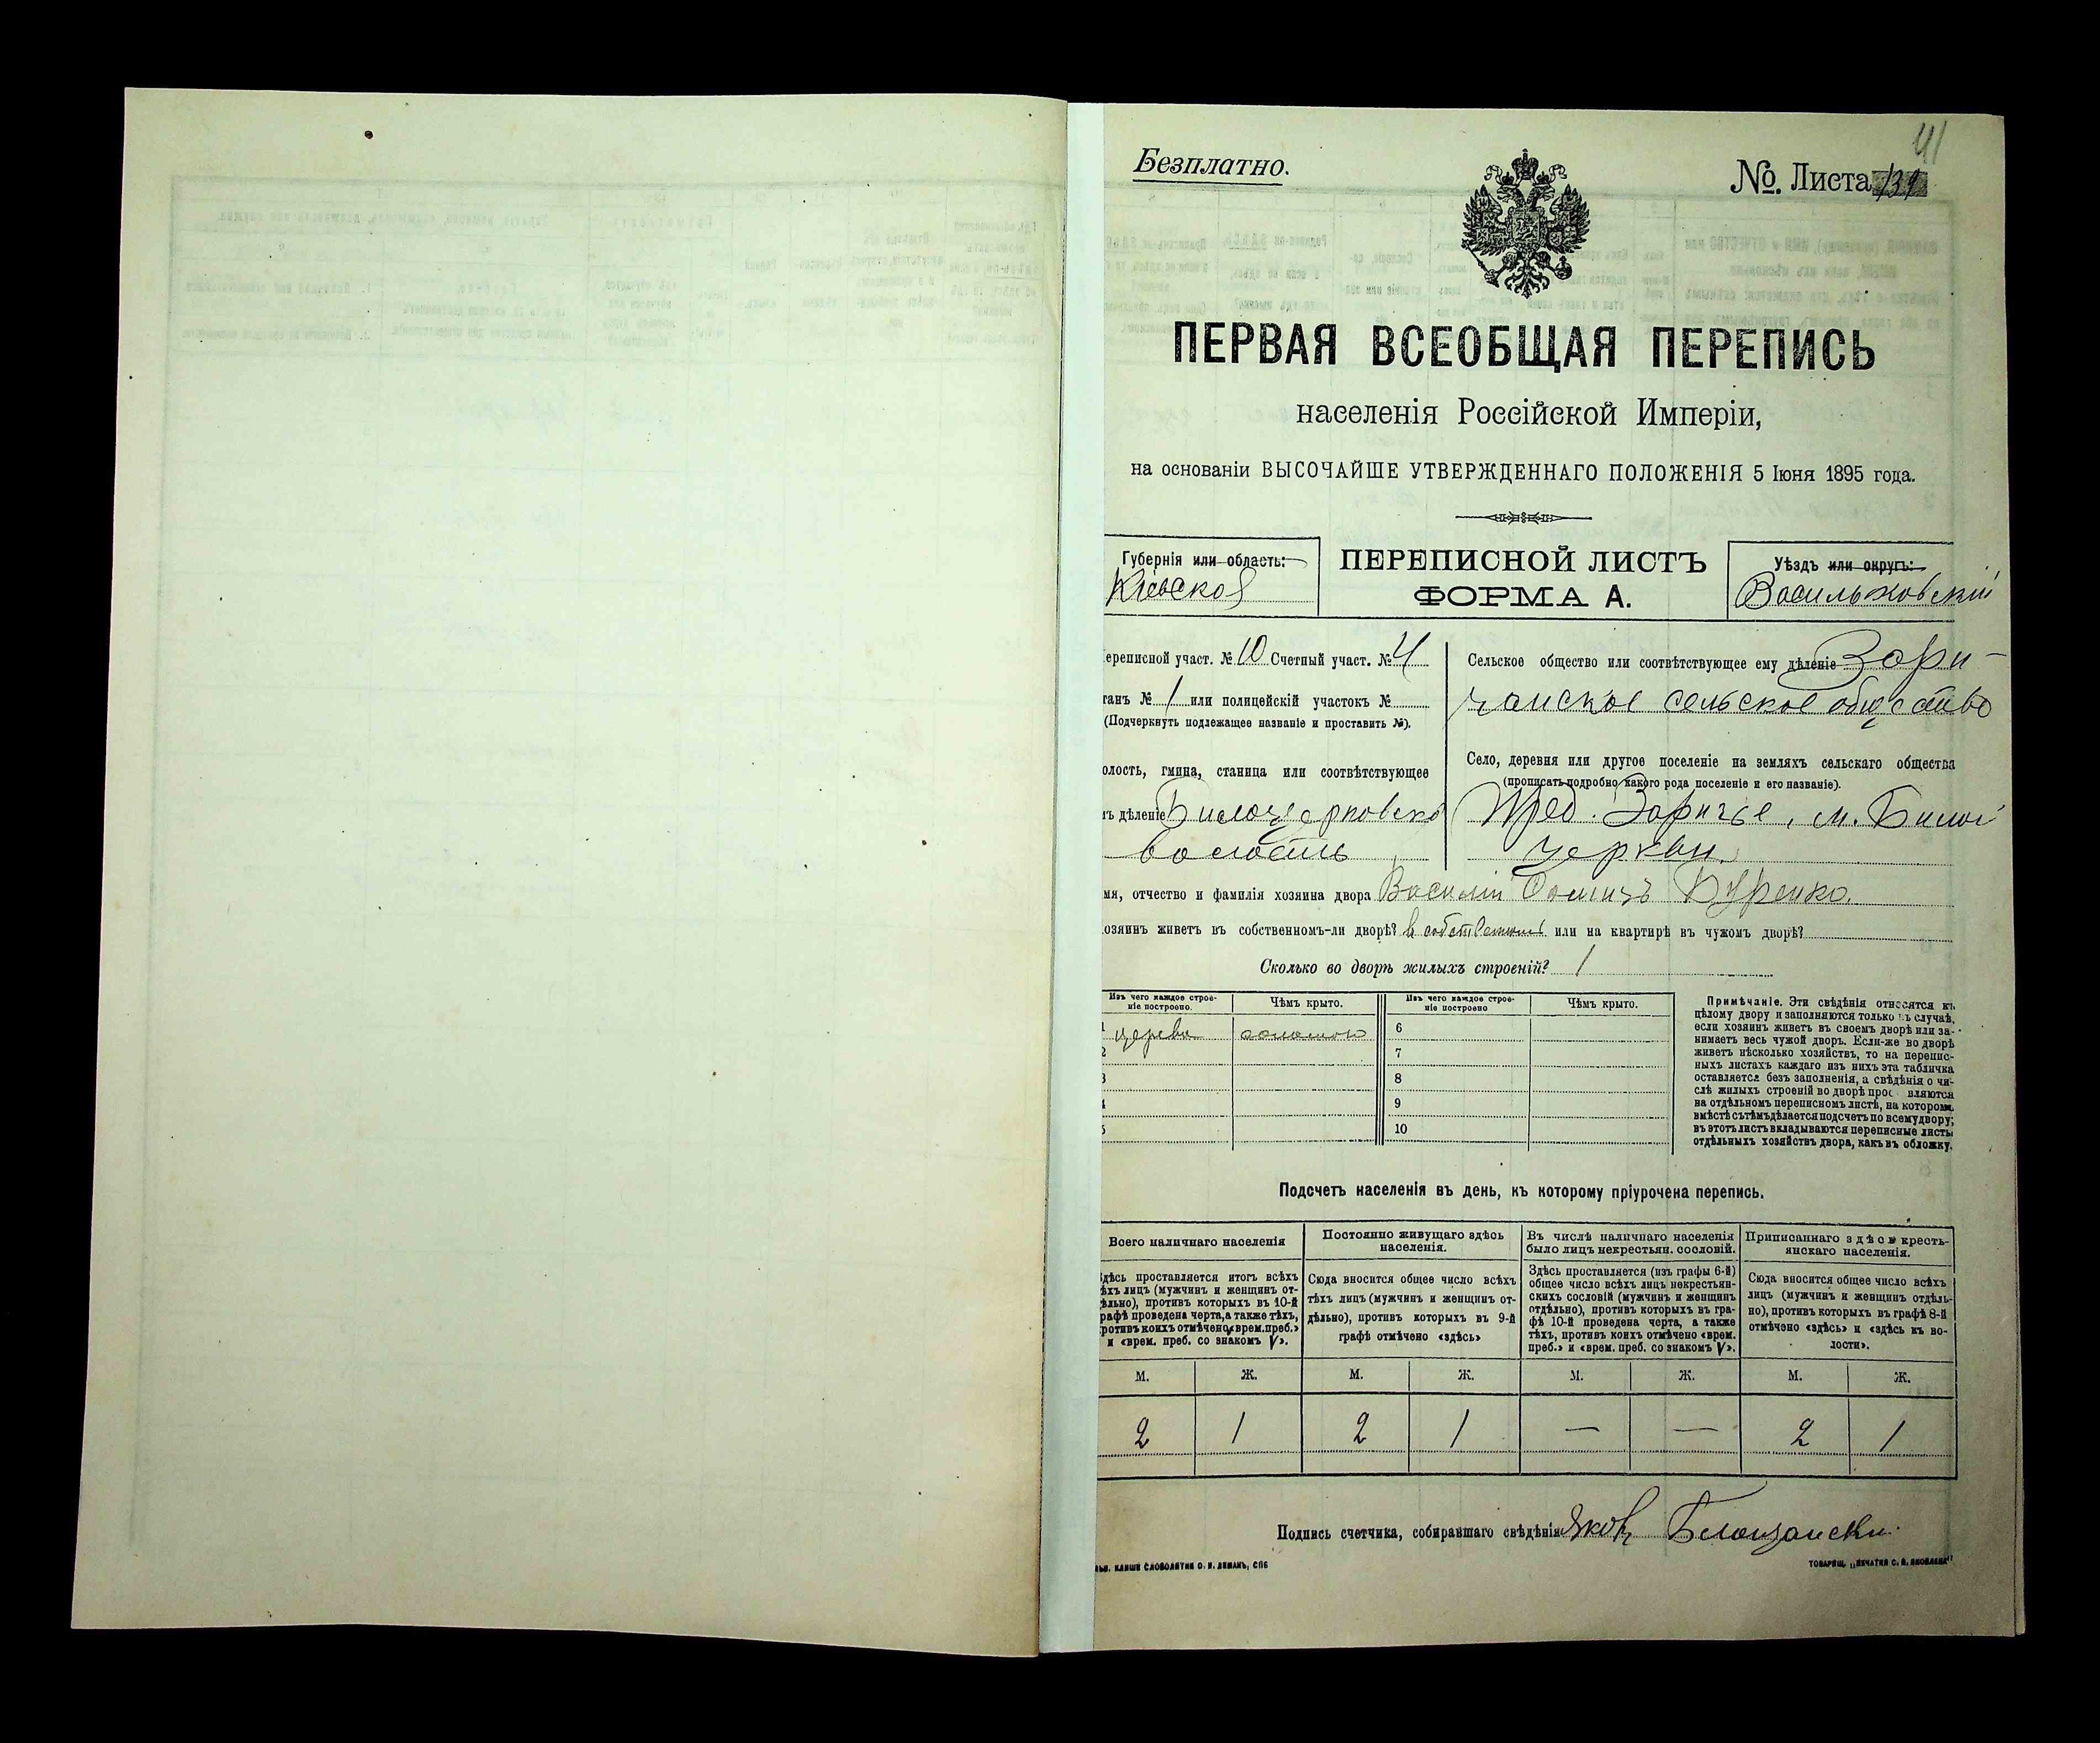 41
Безплатно.
№. Листа 139
ПЕРВАЯ ВСЕОБЩАЯ ПЕРЕПИСЬ
населенія Россійской Имперіи,
на основаніи ВЫСОЧАЙШЕ УТВЕРЖДЕННАГО ПОЛОЖЕНІЯ 5 Іюня 1895 года.
Губернія или область:
Кіевская
ПЕРЕПИСНОЙ ЛИСТЪ
ФОРМА А.
Уѣздъ или округъ:
Васильковскій
ереписной участ. № 10 Счетный участ. № 4
танъ № 1 или полицейскій участокъ №
(Подчеркнуть подлежащее названіе и проставить №).
олость, гмина, станица или соотвѣтствующее
ъ дѣленіе Билоцерковска
волость
Сельское общество или соотвѣтствующее ему дѣленіе Зари-
чанское сельское общество
Село, деревня или другое поселеніе на земляхъ сельскаго общества
(прописать подробно какого рода поселеніе и его названіе).
Пред. Заричье, м. Билой
Церкви.
мя, отчество и фамилія хозяина двора Василій Куренко.
озяинъ живетъ въ собственномъ-ли дворѣ? в собственномъ или на квартирѣ въ чужомъ дворѣ?
Сколько во дворѣ жилыхъ строеній? 1
Изъ чего каждое строе-
ніе построено.
Чѣмъ крыто.
Изъ чего каждое строе-
ніе построено
Чѣмъ крыто.
1 дерева соломою
2
3
4
5
6
7
8
9
10
Примѣчаніе. Эти свѣдѣнія относятся къ
цѣлому двору и заполняются только въ случаѣ,
если хозяинъ живетъ въ своемъ дворѣ или за-
нимаетъ весь чужой дворъ. Если-же во дворѣ
живетъ нѣсколько хозяйствъ, то на перепис-
ныхъ листахъ каждаго изъ нихъ эта табличка
оставляется безъ заполненія, а свѣдѣнія о чи-
слѣ жилыхъ строеній во дворѣ прос вляются
на отдѣльномъ переписномъ листѣ, на которомъ
вмѣстѣ съ тѣмъ дѣлается подсчетъ по всему двору;
въ этотъ листъ вкладываются переписные листы
отдѣльныхъ хозяйствъ двора, какъ въ обложку.
Подсчетъ населенія въ день, къ которому пріурочена перепись.
Всего наличнаго населенія
Постоянно живущаго здѣсь
населенія.
Въ числѣ наличнаго населенія
было лицъ некрестьян. сословій.
Приписаннаго здѣсь кресть-
янскаго населенія.
Здѣсь проставляется итогъ всѣхъ
ѣхъ лицъ (мужчинъ и женщинъ от-
ѣльно), противъ которыхъ въ 10-й
рафѣ проведена черта, а также тѣхъ,
ротивъ коихъ отмѣчено «врем. преб.»
и «врем. преб. со знакомъ V».
Сюда вносится общее число всѣхъ
тѣхъ лицъ (мужчинъ и женщинъ от-
дѣльно), противъ которыхъ въ 9-й
графѣ отмѣчено «здѣсь»
Здѣсь проставляется (изъ графы 6-й)
общее число всѣхъ лицъ некрестьян-
скихъ сословій (мужчинъ и женщинъ
отдѣльно), противъ которыхъ въ гра-
фѣ 10-й проведена черта, а также
тѣхъ, противъ коихъ отмѣчено «врем.
преб.» и «врем. преб. со знакомъ V».
Сюда вносится общее число всѣхъ
лицъ (мужчинъ и женщинъ отдѣль-
но), противъ которыхъ въ графѣ 8-й
отмѣчено «здѣсь» и «здѣсь къ во-
лости».
М. Ж. М. Ж. М. Ж. М. Ж.
2 1 2 1 — — 2 1
Подпись счетчика, собиравшаго свѣдѣнія Яков
КЛИШЕ СЛОВОЛИТНИ О. И. ЛЕМАНЪ, СПБ
ТОВАРИЩ. „ПЕЧАТНЯ С. П. ЯКОВЛЕВА"